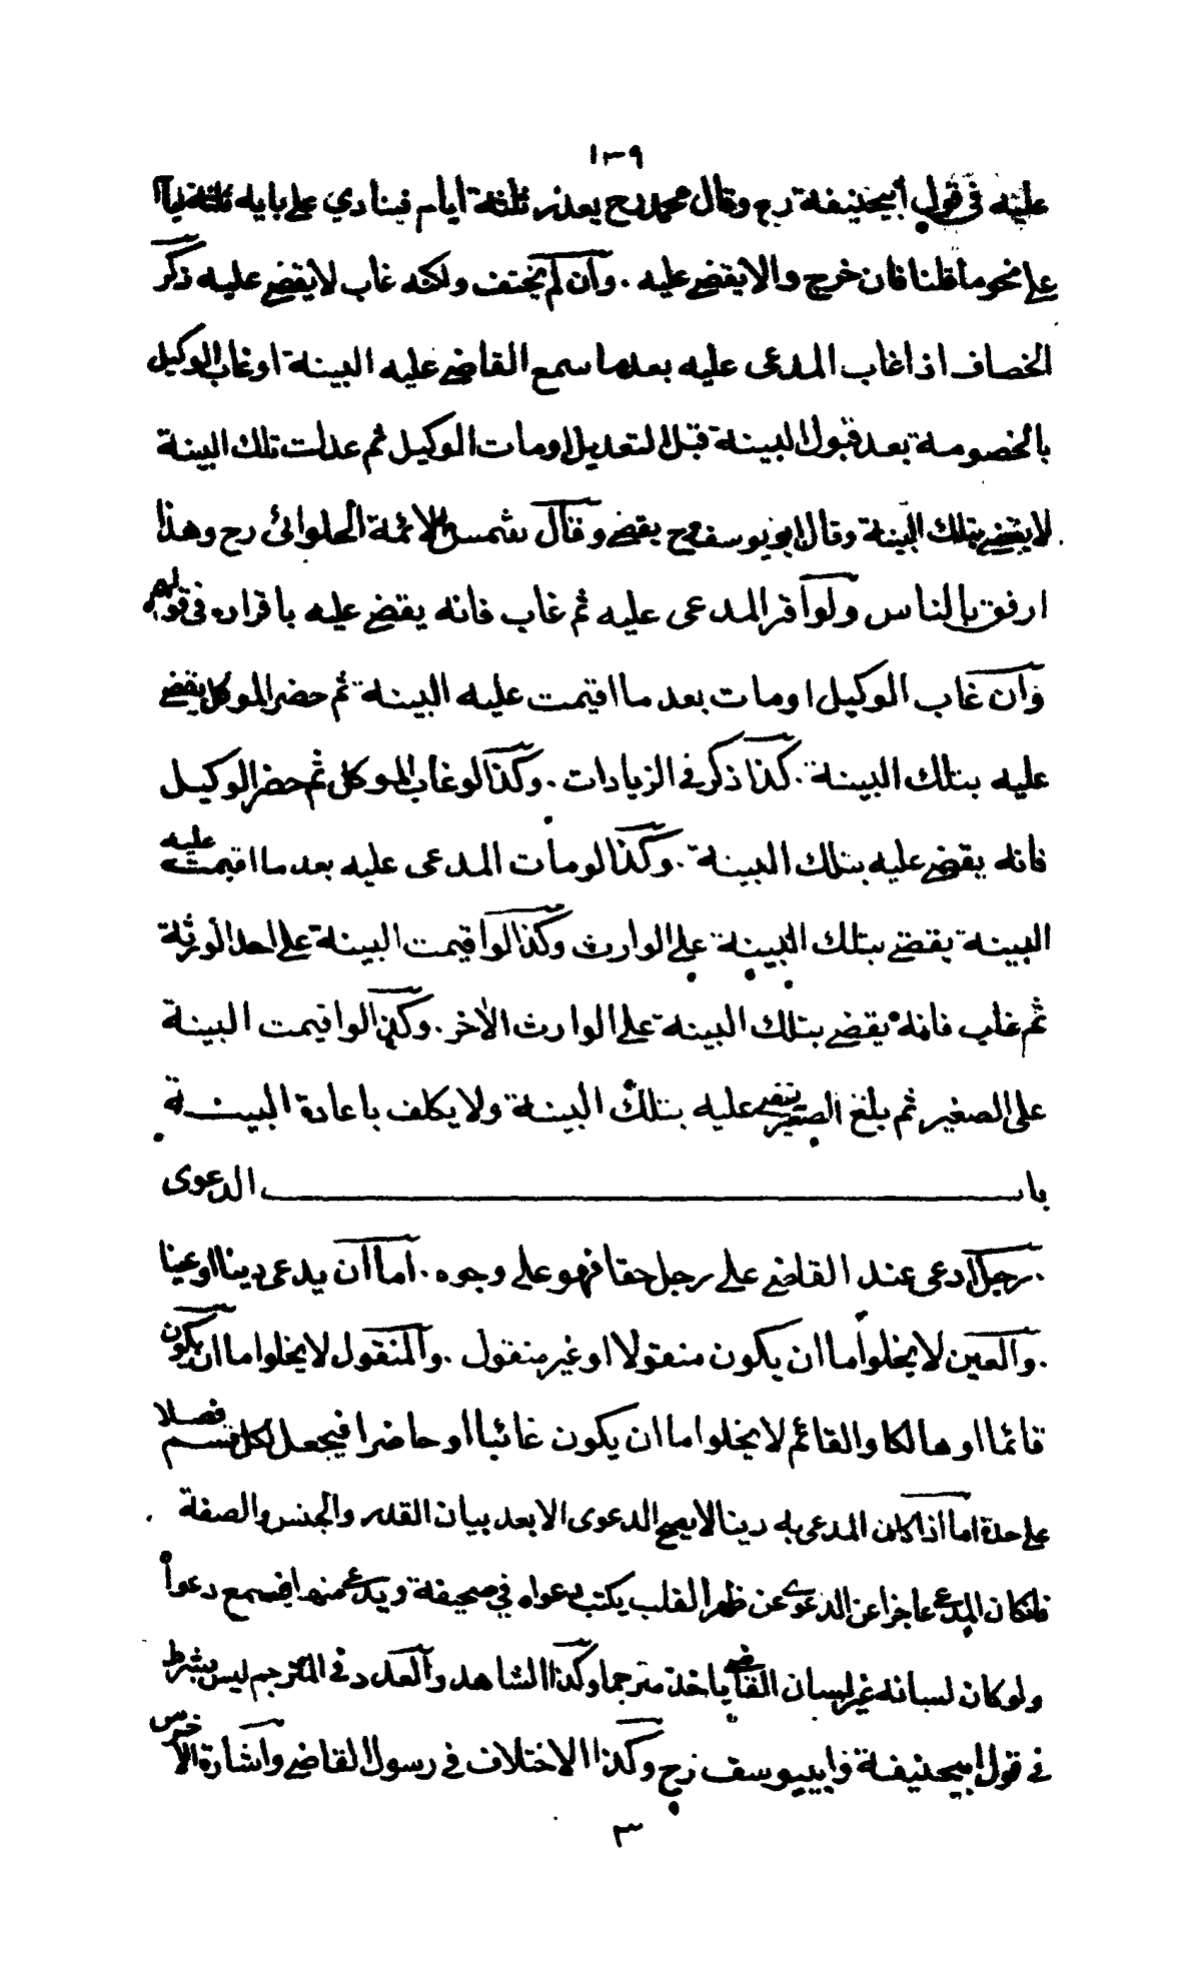 ١٣٩
عليه فى قول أبيحنيفة رح وقال محمد رح يعذر ثلثة ايام فينادي على بابه ثلثة ايام
على نحو ما قلنا فان خرج والا يقضى عليه . وان لم يختف ولكنه غاب لا يقضى عليه ذكر
الخصاف اذا غاب المدعى عليه بعدما سمع القاضى عليه البينة او غاب الوكيل
بالخصومة بعد قبول البينة قبل التعديل او مات الوكيل ثم عدلت تلك البينة
لا يقضى بتلك البينة وقال ابو يوسف رح يقضى وقال شمس الائمة الحلوائى رح وهذا
ارفق بالناس ولو اقر المدعى عليه ثم غاب فانه يقضى عليه باقراره فى قولهم
وان غاب الوكيل او مات بعد ما اقيمت عليه البينة ثم حضر الموكل يقضى
عليه بتلك البينة . كذا ذكر فى الزيادات . وكذا لو غاب الموكل ثم حضر الوكيل
فانه يقضى عليه بتلك البينة . وكذا لو مات المدعى عليه بعد ما اقيمت عليه
البينة يقضى بتلك البينة على الوارث وكذا لو اقيمت البينة على احد الورثة
ثم غاب فانه يقضى بتلك البينة على الوارث الاخر . وكذا لو اقيمت البينة
على الصغير ثم بلغ الصغير يقضى عليه بتلك البينة ولا يكلف باعادة البينة
باب الدعوى
. رجل ادعى عند القاضى على رجل حقا فهو على وجوه . اما ان يدعى دينا او عينا
. والعين لا يخلوا ما ان يكون منقولا او غير منقول . والمنقول لا يخلوا ما ان يكون
قائما او هالكا والقائم لا يخلوا ما ان يكون غائبا او حاضرا فيجعل لكل قسم فصلا
على حدة اما اذا كان المدعى به دينا لا يصح الدعوى الا بعد بيان القدر والجنس والصفة
فان كان المدعى عاجزا عن الدعوى عن ظهر القلب يكتب دعواه فى صحيفة ويدعى منها فيسمع دعواه
ولو كان لسانه غير لسان القاضى ياخذ مترجما وكذا الشاهد والعدد فى المترجم ليس بشرط
فى قول ابيحنيفة وابييوسف رح وكذا الاختلاف فى رسول القاضى واشارة الاخرس
٣